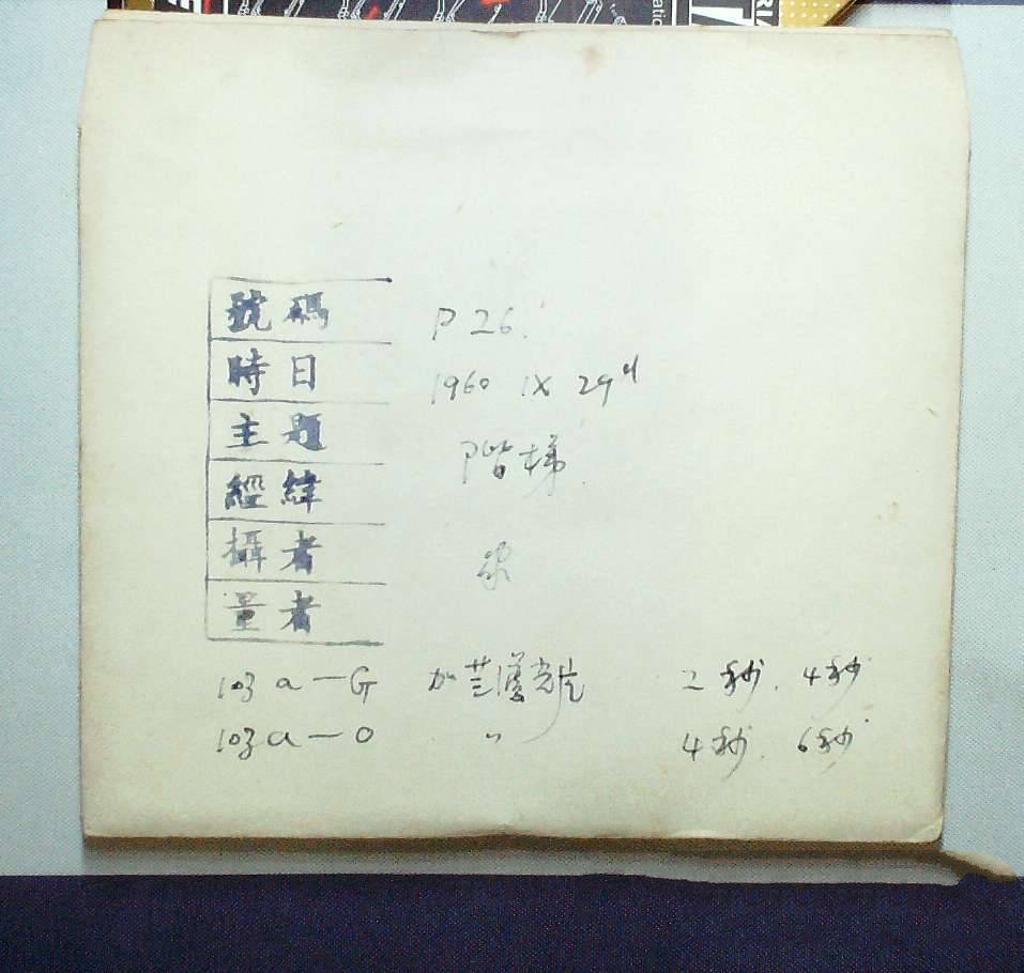 號碼 P 26.
時日 1960 IX 29d
主題 階梯
經緯
攝者
量者
103a—G 加兰濾光片 2秒. 4秒
103a—O 〃 4秒. 6秒